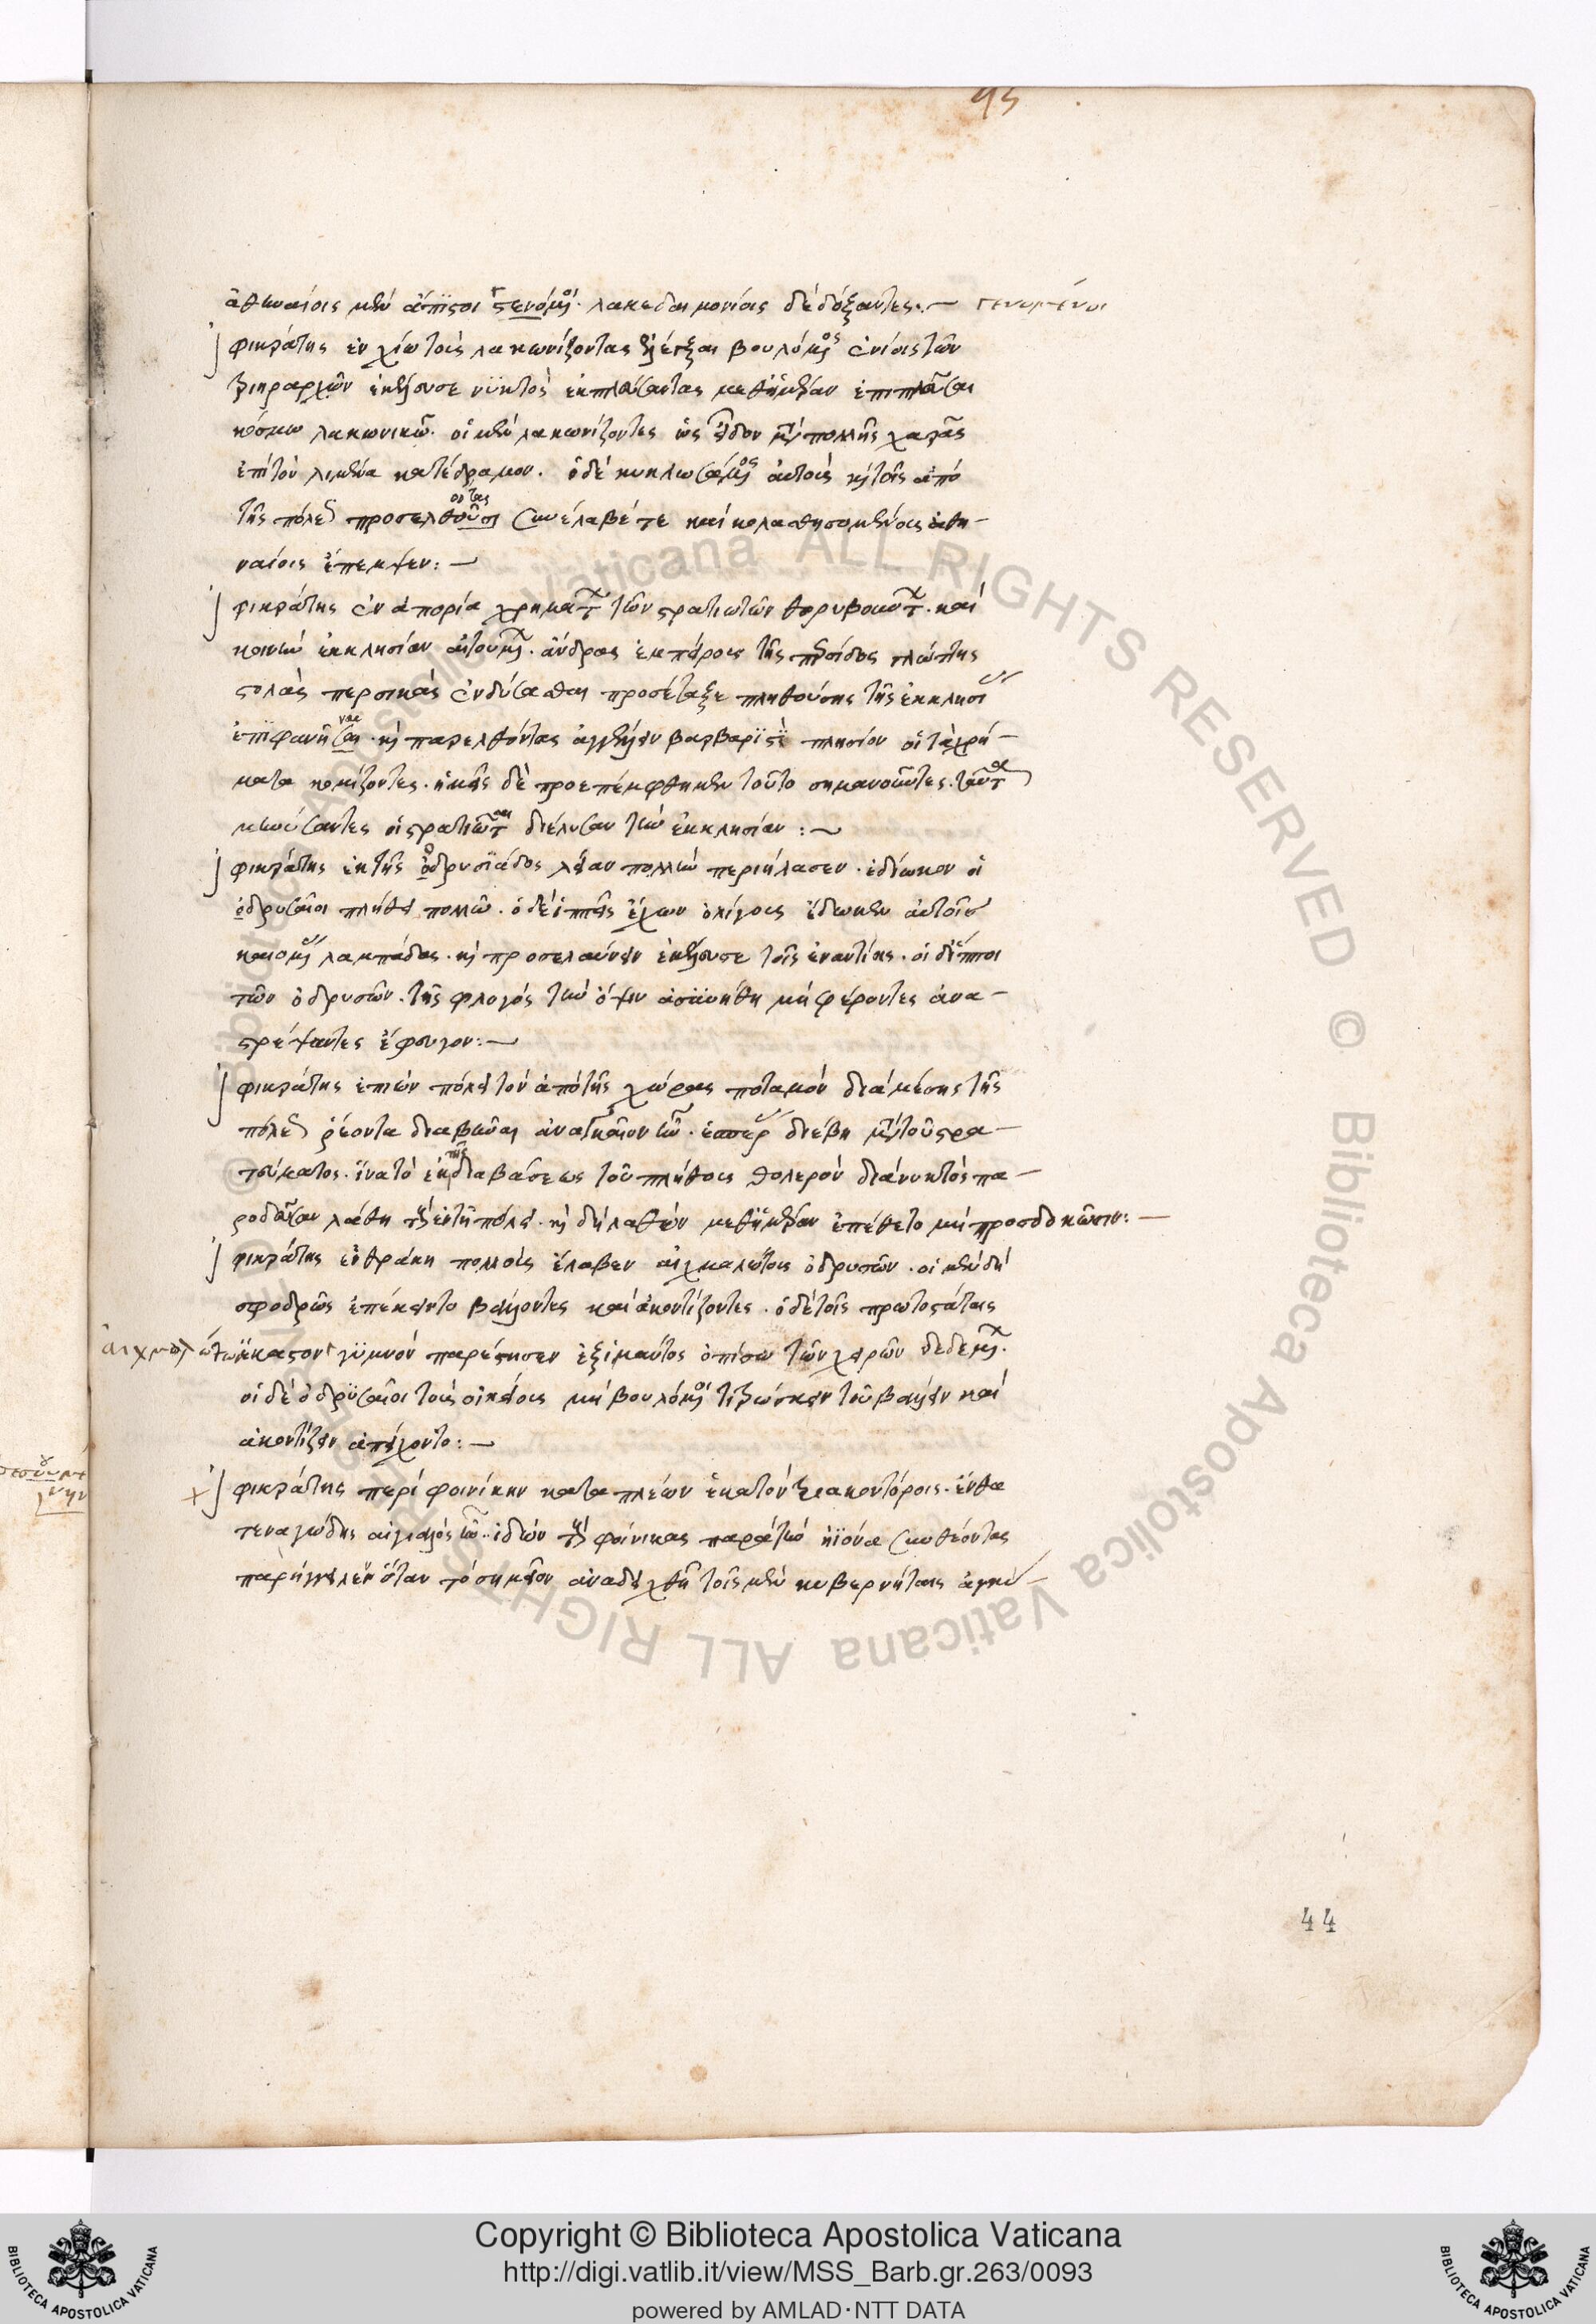 95
ἀθηναίοις μὲν ἄπιστοι γενόμενοι· λακεδαιμονίοις δὲ δόξαντες:— γενόμενοι
ἰφικράτης ἐν χίω τοὺς λακωνίζοντας ἐλέγξαι βουλόμενος ἐνίοις τῶν
τριηράρχων ἐκέλευσε νυκτὸς ἐκπλεύσαντας μεθἡμέραν ἐπιπλεῦσαι
κόσμω λακωνικῶ· οἱ μὲν λακωνίζοντες ὡς εἶδον μετὰ πολλῆς χαρᾶς
ἐπὶ τὸν λιμένα κατέδραμον. ὁ δὲ κυκλωσάμενος αὐτοὺς καὶ τοῖς ἀπὸ
τῆς πόλεως προσελθοῦσι συνέλαβέ τε καὶ κολασθησομένους ἀθη-
ναίοις ἔπεμψεν:—
ἰφικράτης ἐν ἀπορία χρημάτων τῶν στρατιωτῶν θορυβούντων· καὶ
κοινὴν ἐκκλησίαν αἰτουμένων· ἄνδρας ἐμπείρους τῆς περσίδος γλώττης
στολὰς περσικὰς ἐνδύσασθαι προσέταξε πληθούσης τῆς ἐκκλησίας
ἐπιφανῆναι· καὶ παρελθόντας ἀγγέλειν βαρβαριστὶ πλησίον οἱ τὰ χρή-
ματα κομίζοντες· ἡμεῖς δὲ προεπέμφθημεν τοῦτο σημανοῦντες· ταῦτα
ἀκούσαντες οἱ στρατιῶται διέλυσαν τὴν ἐκκλησίαν:—
ἰφικράτης ἐκ τῆς ὀδρυσιάδος λείαν πολλὴν περιήλασεν· ἐδίωκον οἱ
ὀδρυσαῖοι πλήθει πολλῶ· ὁ δὲ ἱππεῖς ἔχων ὀλίγους ἔδωκεν αὐτοῖς
καιομένας λαμπάδας· καὶ προσελαύνειν ἐκέλευσε τοῖς ἐναντίοις· οἱ δἵπποι
τῶν ὀδρυσῶν· τῆς φλογὸς τὴν ὄψιν ἀσυνήθη μὴ φέροντες ἀνα-
στρέψαντες ἔφευγον:—
ἰφικράτης ἐπιὼν πόλει τὸν ἀπὸ τῆς χώρας ποταμὸν διὰ μέσης τῆς
πόλεως ῥέοντα διαβῆναι ἀναγκαῖον ἦν· ἑσπέρας διέβη μετὰ τοῦ στρα-
τεύματος· ἵνα τὸ ἐκ τῆς διαβάσεως τοῦ πλήθους θολερὸν διὰ νυκτὸς πα-
ροδεῦσαν λάθη τοὺς ἐν τῆ πόλει· καὶ δὴ λαθὼν μεθἡμέραν ἐπέθετο μὴ προσδοκῶσιν:—
ἰφικράτης ἐν θράκη πολλοὺς ἔλαβεν αἰχμαλώτους ὀδρυσῶν· οἱ μὲν δὴ
σφοδρῶς ἐπέκειντο βάλλοντες καὶ ἀκοντίζοντες· ὁ δὲ τοῖς πρωτοστάταις
αἰχμαλώτων ἕκαστον γυμνὸν παρέστησεν ἐξ ἱμάντος ὀπίσω τῶν χειρῶν δεδεμένων·
οἱ δὲ ὀδρυσαῖοι τοὺς οἰκείους μὴ βουλόμενοι τιτρώσκειν τοῦ βάλλειν καὶ
ἀκοντίζειν ἀπείχοντο:—
ἰφικράτης περὶ φοινίκην καταπλέων ἑκατὸν τριακοντόροις· ἔνθα
τεναγώδης αἰγιαλὸς ἦν· ἰδὼν τοὺς φοίνικας παρὰ τὴν ἠϊόνα συνθέοντας
παρήγγειλεν ὅταν τὸ σημεῖον ἀναδειχθῆ τοῖς μὲν κυβερνήταις ἀγκύ-
44
Copyright © Biblioteca Apostolica Vaticana
http://digi.vatlib.it/view/MSS_Barb.gr.263/0093
powered by AMLAD·NTT DATA